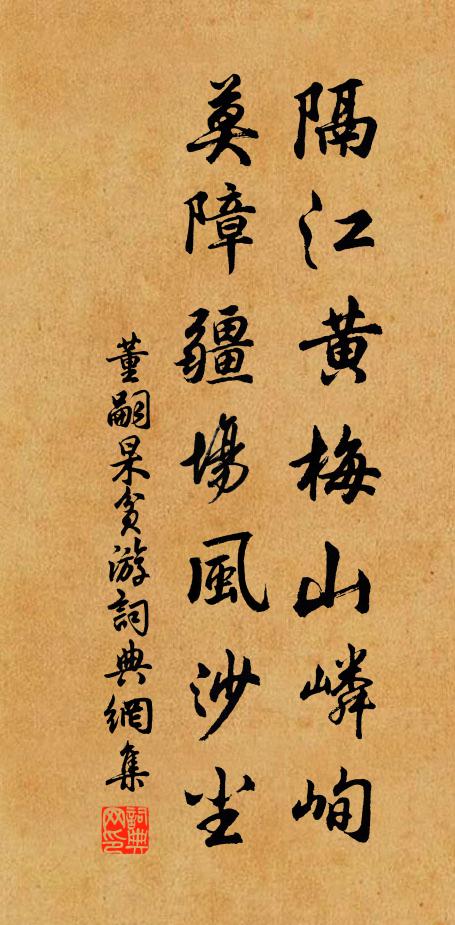 隔江黄梅山嶙峋
莫障疆場風沙尘
董嗣杲貧游詞典網集
詞典網印